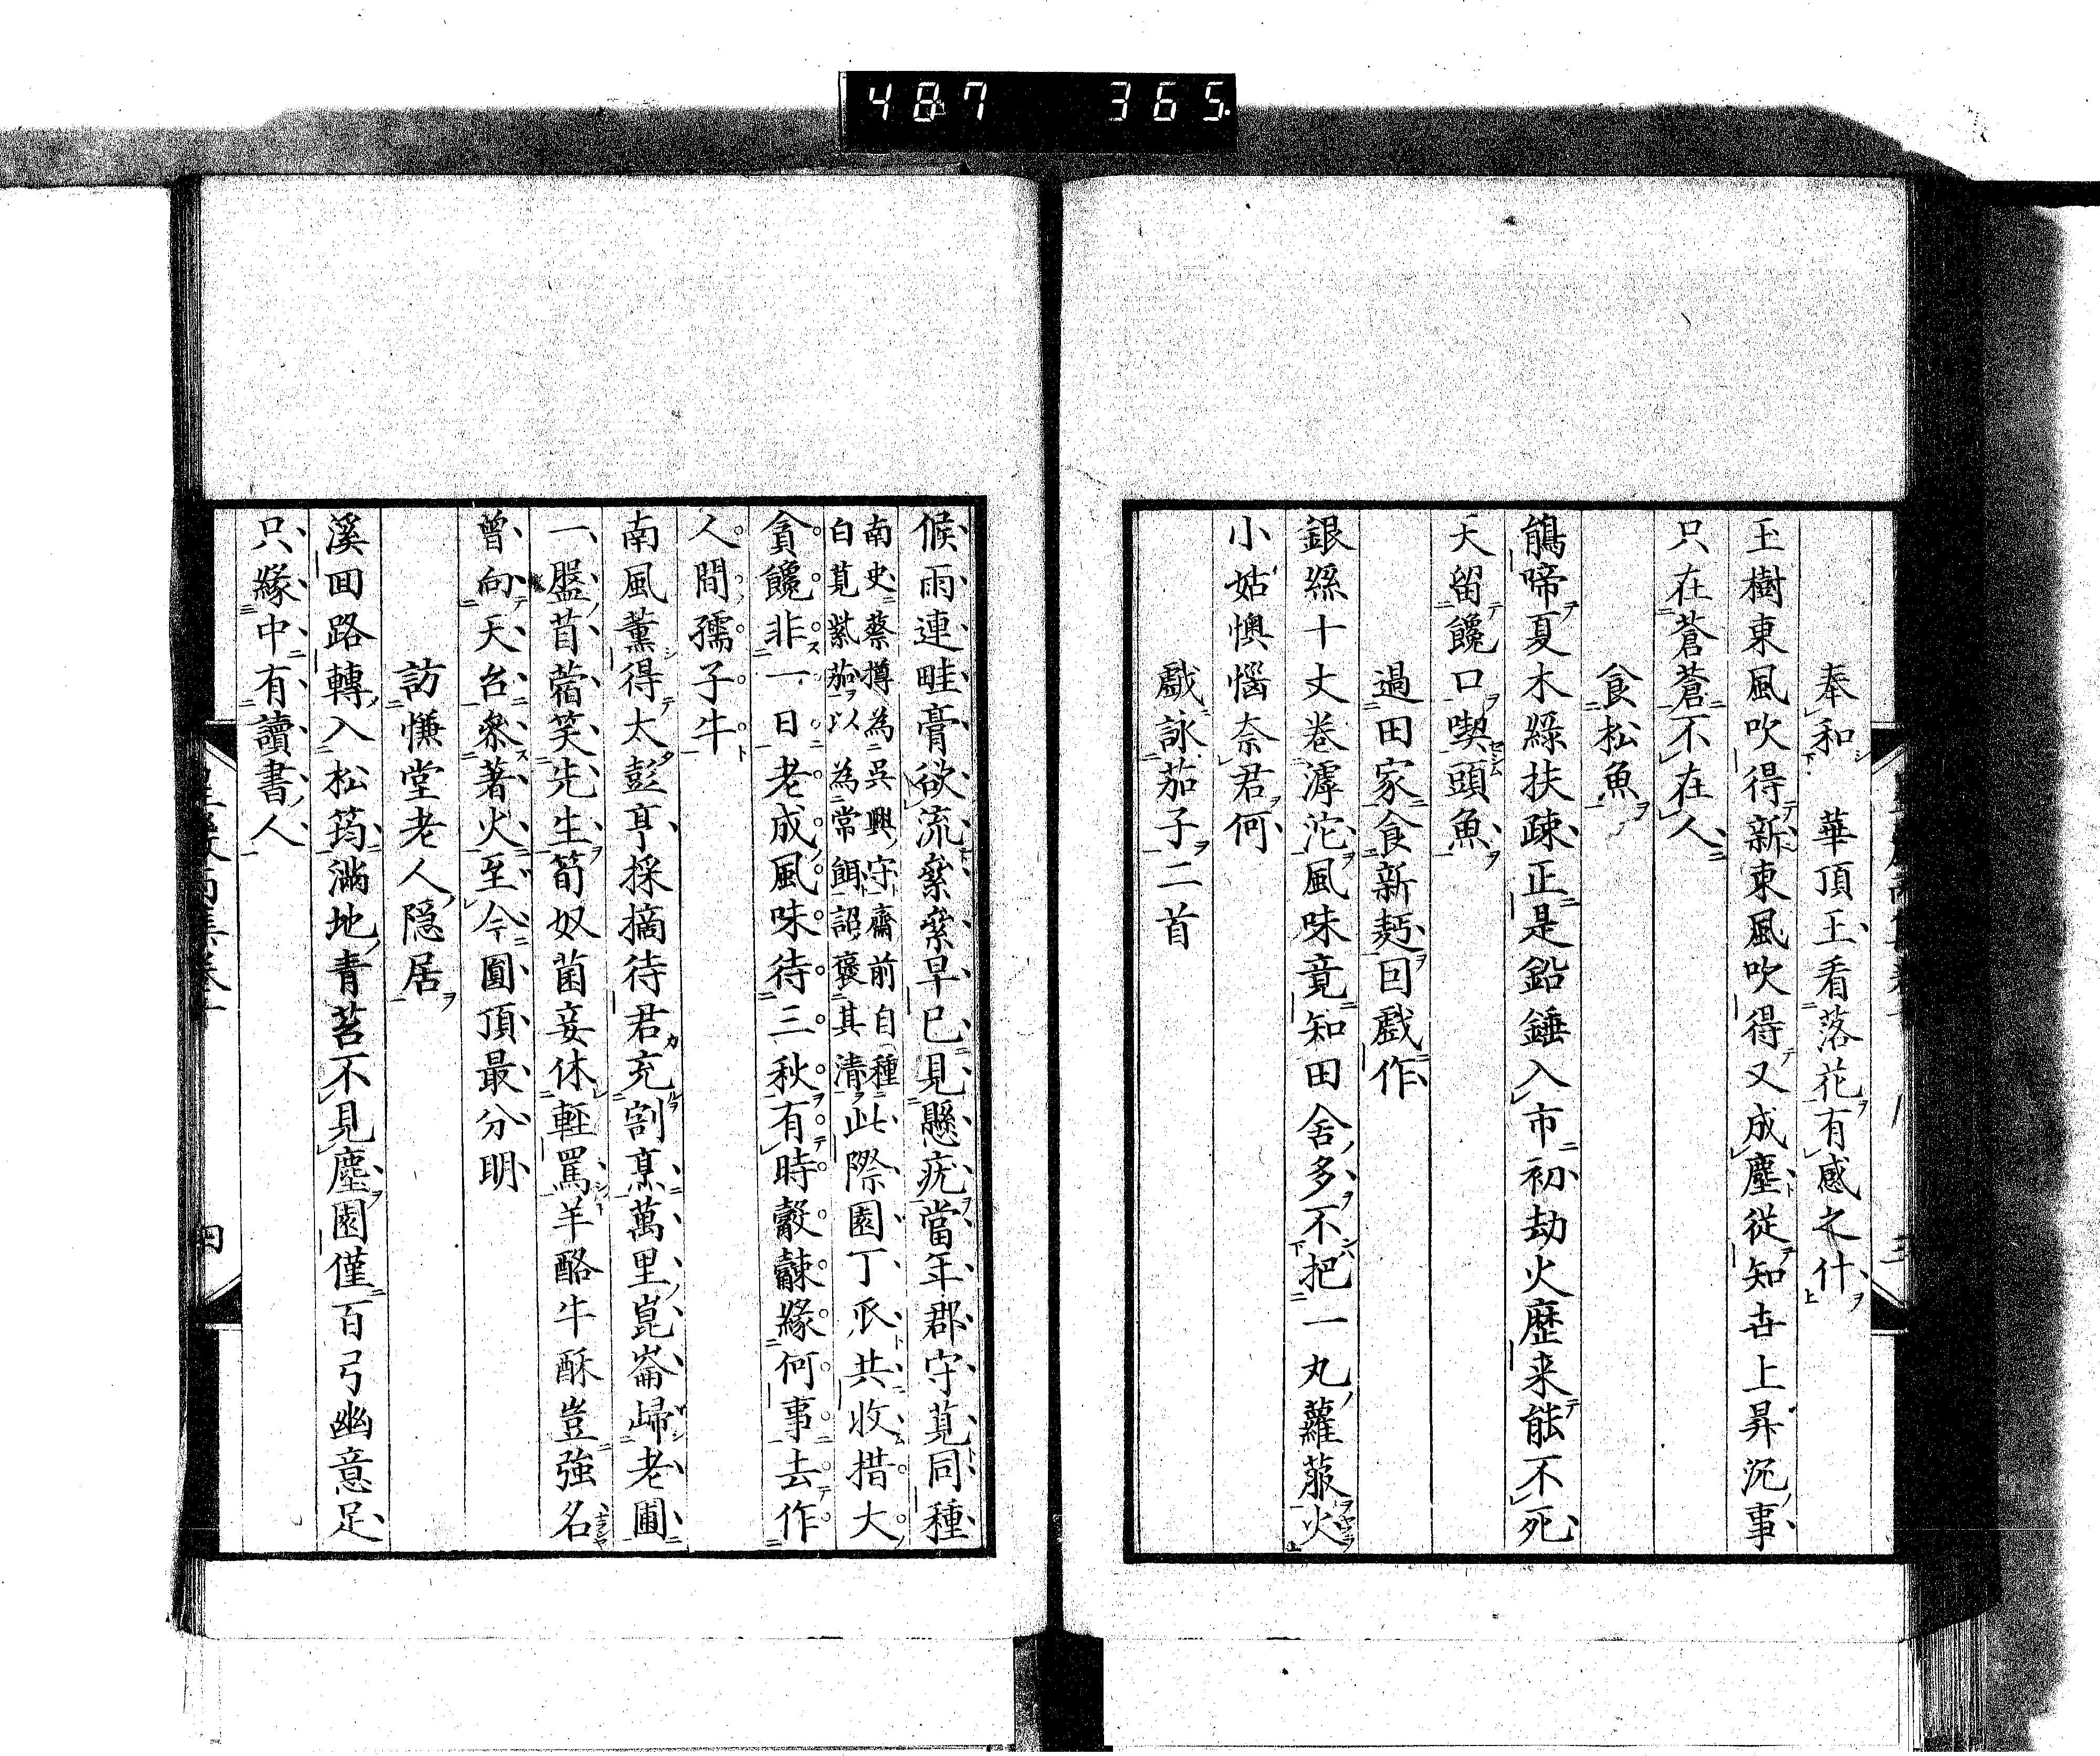 487 365
奉和 華頂王看落花有感之什
玉樹東風吹得新東風吹得又成塵從知世上昇沉事
只在蒼蒼不在人
食松魚
鵑啼夏木綠扶疎正是鉛錘入市初劫火歷来能不死
天留饞口喫頭魚
過田家食新麪回戲作
銀絲十丈卷滹沱風味竟知田舍多不把一丸蘿菔火
小姑懊惱奈君何
戲詠茄子二首
候雨連畦膏欲流纍纍早已見懸疣當年郡守莧同種
南史蔡撙為吳興守齋前自種
白莧紫茄以為常餌詔褒其清
此際園丁瓜共收措大
貪饞非一日老成風味待三秋有時觳觫緣何事去作
人間孺子牛
南風薰得太彭亨採摘待君充割烹萬里崑崙歸老圃
一盤苜蓿笑先生筍奴菌妾休輕罵羊酪牛酥豈強名
曾向天台參著火至今圓頂最分明
訪慊堂老人隱居
溪回路轉入松筠滿地青苔不見塵園僅百弓幽意足
只緣中有讀書人
四